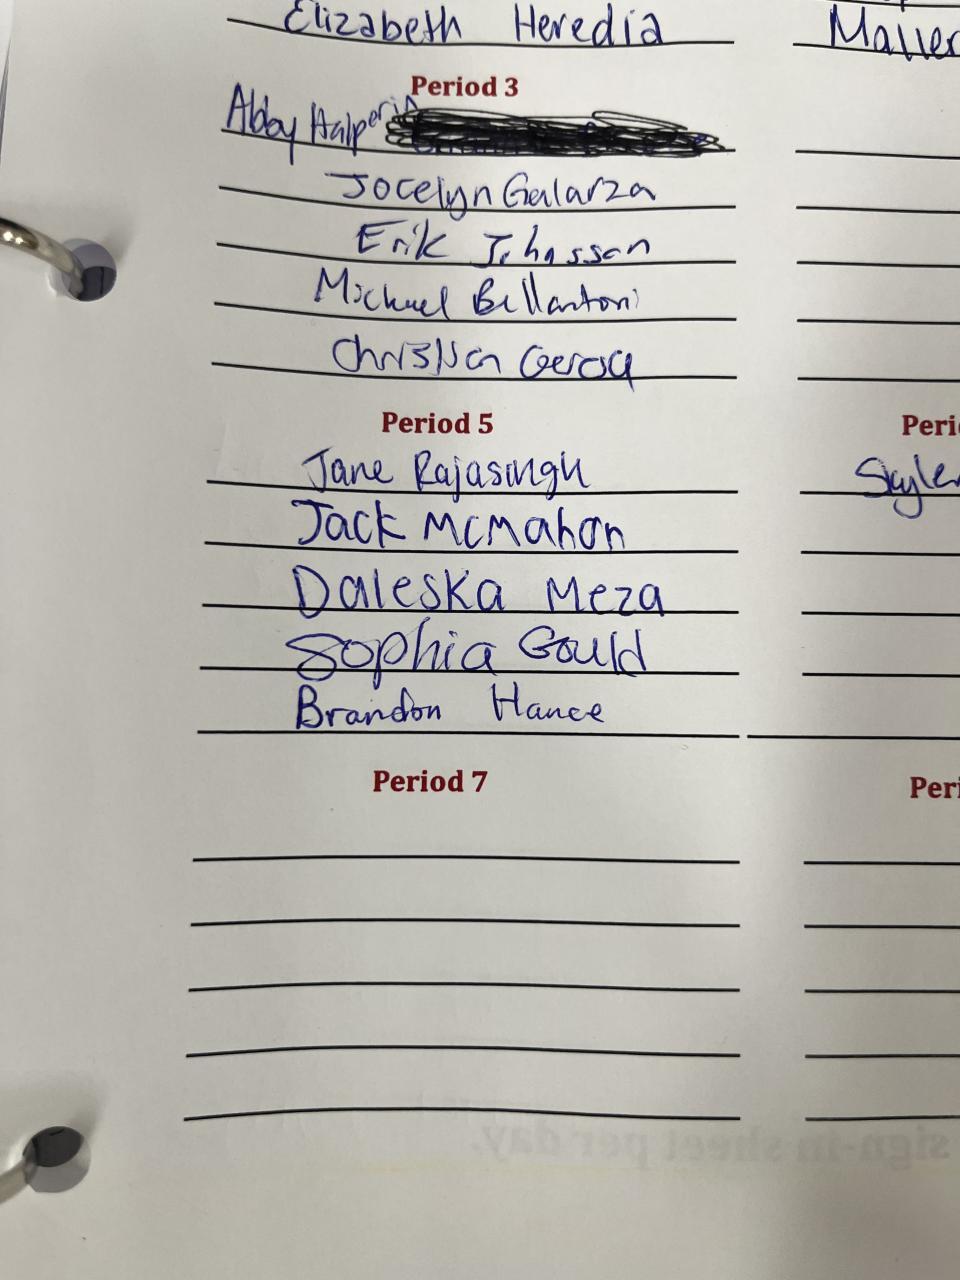 Elizabeth Heredia
Period 3
Abby Halperin
Jocelyn Galarza
Erik Johnssen
Michael Bellantoni
Christian Gerosa
Period 5
Jane Rajasingh
Skyler
Jack McMahon
Daleska Meza
Sophia Gould
Brandon Hance
Period 7
sign-in sheet per day.